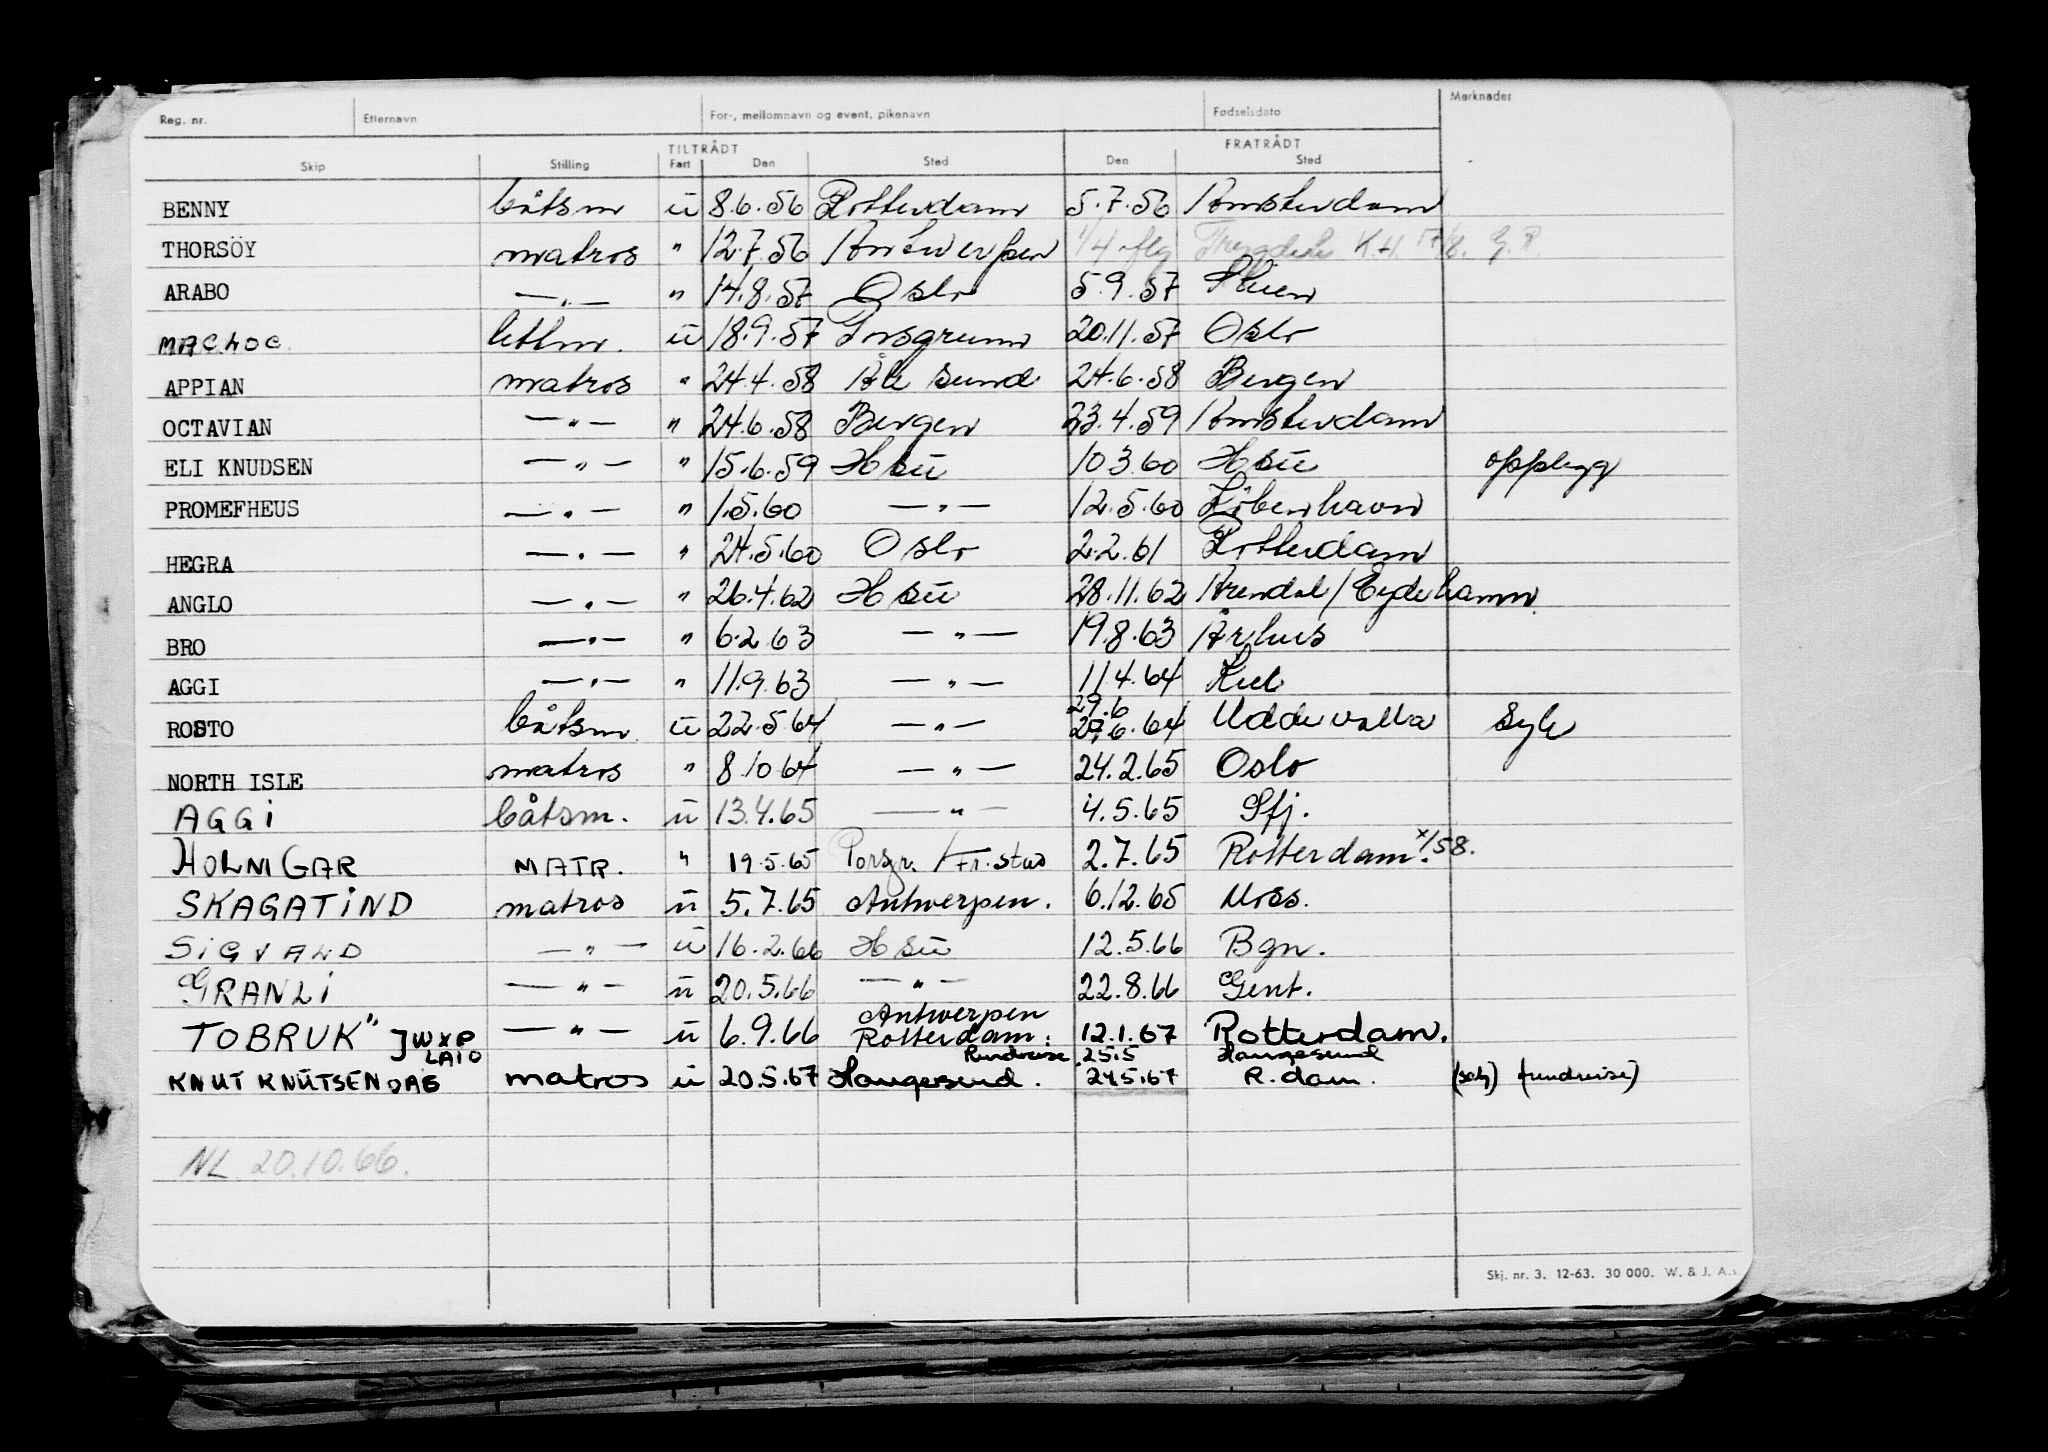 Reg. nr. Etternavn For-, mellomnavn og event. pikenavn Fødselsdato Merknader
TILTRÅDT FRATRÅDT
Skip Stilling Fart Den Sted Den Sted
BENNY båtsm ü 8.6.56 Rotterdam 5.7.56 Amsterdam
THORSÖY matros " 12.7.56 Antwerpen 1/4 flg K.H. 17/8. G.R.
ARABO —"— " 14.8.57 Oslo 5.9.57 Skien
MACHOC lettm. ü 18.9.57 Porsgrunn 20.11.57 Oslo
APPIAN matros " 24.4.58 Ålesund 24.6.58 Bergen
OCTAVIAN —"— " 24.6.58 Bergen 23.4.59 Amsterdam
ELI KNUDSEN —"— " 15.6.59 Hsü 10.3.60 Hsü opplegg
PROMEFHEUS —"— " 1.5.60 —"— 12.5.60 København
HEGRA —"— " 24.5.60 Oslo 2.2.61 Rotterdam
ANGLO —"— " 26.4.62 Hsü 28.11.62 Arendal/Eydehamn
BRO —"— " 6.2.63 —"— 19.8.63 Århus
AGGI —"— " 11.9.63 —"— 11.4.64 Kiel
29.6
ROSTO båtsm ü 22.5.64 —"— 27.6.64 Uddevalla Syk
NORTH ISLE matros " 8.10.64 —"— 24.2.65 Oslo
AGGI båtsm. ü 13.4.65 —"— 4.5.65 Sfj.
HOLMGAR MATR. " 19.5.65 Porsgr. / Fr.stad 2.7.65 Rotterdam. x/58.
SKAGATIND matros ü 5.7.65 Antwerpen. 6.12.65 Moss.
SIGVALD —"— ü 16.2.66 Hsü 12.5.66 Bgn.
GRANLI —"— ü 20.5.66 —"— 22.8.66 Gent.
Antwerpen
TOBRUK" ]WXP —"— ü 6.9.66 Rotterdam: 12.1.67 Rotterdam.
LAIO Rundreise 25.5 Haugesund
KNUT KNUTSEN OAS matros ü 20.5.67 Haugesund. 24.5.67 R.dam. (rundreise)
NL 20.10.66.
Skj. nr. 3. 12-63. 30 000. W. & J. A.s.